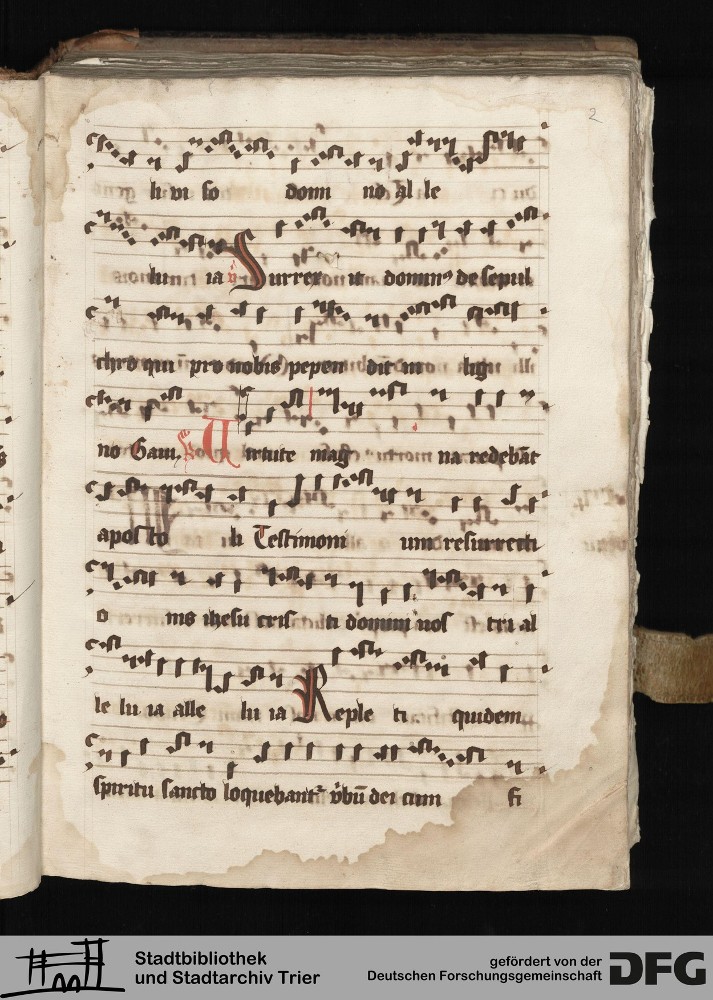 2
li vi so domi no al le
lu ia v Surrex it domin9 de sepul
chro qui pro nobis pepen dit in lig
no Gaui. R Uirtute mag na redebāt
apos to li Testimoni um resurrecti
o nis ihesu cris ti domini nos tri al
le lu ia alle lu ia Reple ti quidem
spiritu sancto loquebant v̄bū dei cum fi
Stadtbibliothek
und Stadtarchiv Trier
gefördert von der
Deutschen Forschungsgemeinschaft
DFG